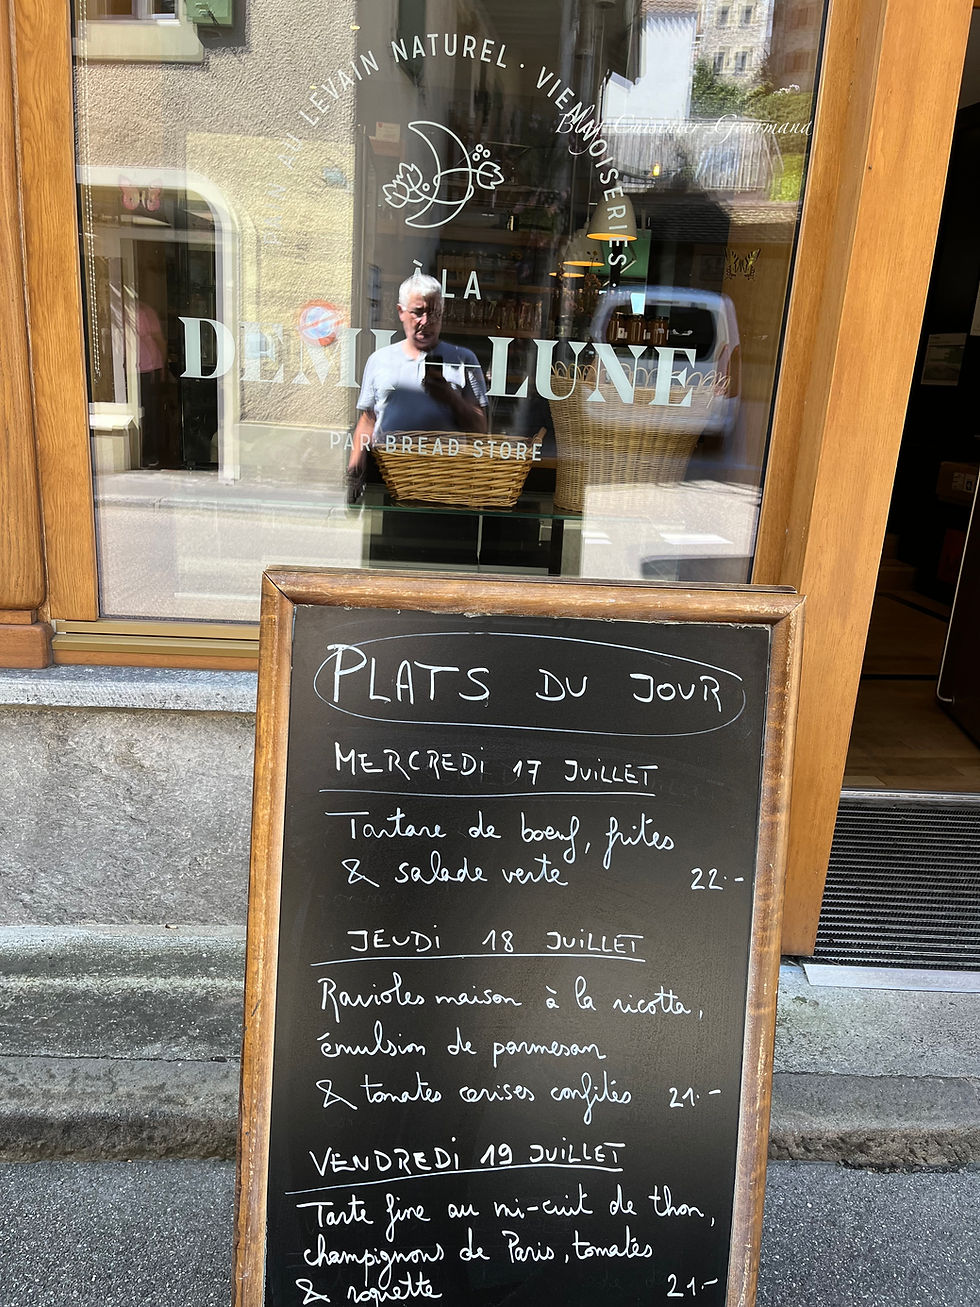 AU LEVAIN NATUREL · VIENNOISERIES ·
Blog Cuisinier Gourmand
À LA
DEMI-LUNE
PAR BREAD STORE
PLATS DU JOUR
MERCREDI 17 JUILLET
Tartare de boeuf, frites
& salade verte 22.-
JEUDI 18 JUILLET
Ravioles maison à la ricotta,
émulsion de parmesan
& tomates cerises confites 21.-
VENDREDI 19 JUILLET
Tarte fine au mi-cuit de thon,
champignons de Paris, tomates
& roquette 21.-